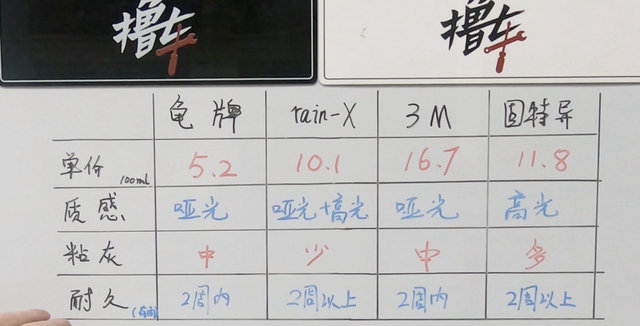 撸车
撸车
龟牌 rain-X 3M 固特异
单价 100ml 5.2 10.1 16.7 11.8
质感 哑光 哑光+高光 哑光 高光
粘灰 中 少 中 多
耐久 2周内 2周以上 2周内 2周以上